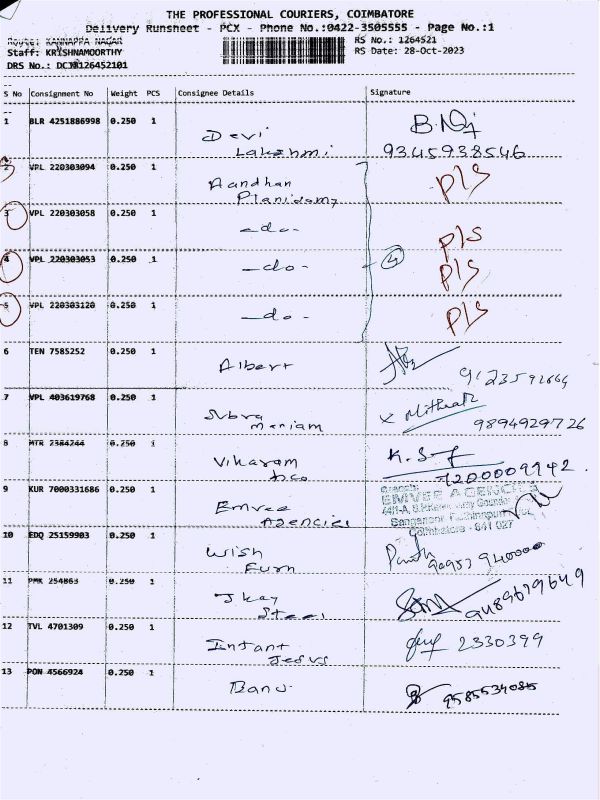 THE PROFESSIONAL COURIERS, COIMBATORE
Delivery Runsheet - PCX - Phone No.:0422-3505555 - Page No.:1
KANNAPPA NAGAR
Staff: KRISHNAMOORTHY
RS No.: 1264521
RS Date: 28-Oct-2023
S No Consignment No Weight PCS Consignee Details Signature
1 BLR 4251886998 0.250 1 Devi B.
Lakshmi 9345938546
2 VPL 220303094 0.250 1 Aandhan Pls
3 VPL 220303058 0.250 1 -do- Pls
4 VPL 220303053 0.250 1 -do- 4 Pls
5 VPL 220303120 0.250 1 -do- Pls
6 TEN 7585252 0.250 1 Albert
7 VPL 403619768 0.250 1 Subra x
maniam 9894929726
8 MTR 2384244 0.250 1 Vikaram K.S
9200009942.
9 KUR 7000331686 0.250 1 Emvee EMVEE AGENCIES
Agencies
Coimbatore - 641 027
10 EDQ 25159903 0.250 1 Wish
Furn
11 PMK 254863 0.250 1 Jkay
Steel 9489679649
12 TVL 4701309 0.250 1 Infant 2330399
Jesus
13 PON 4566924 0.250 1 Banu 9585534085